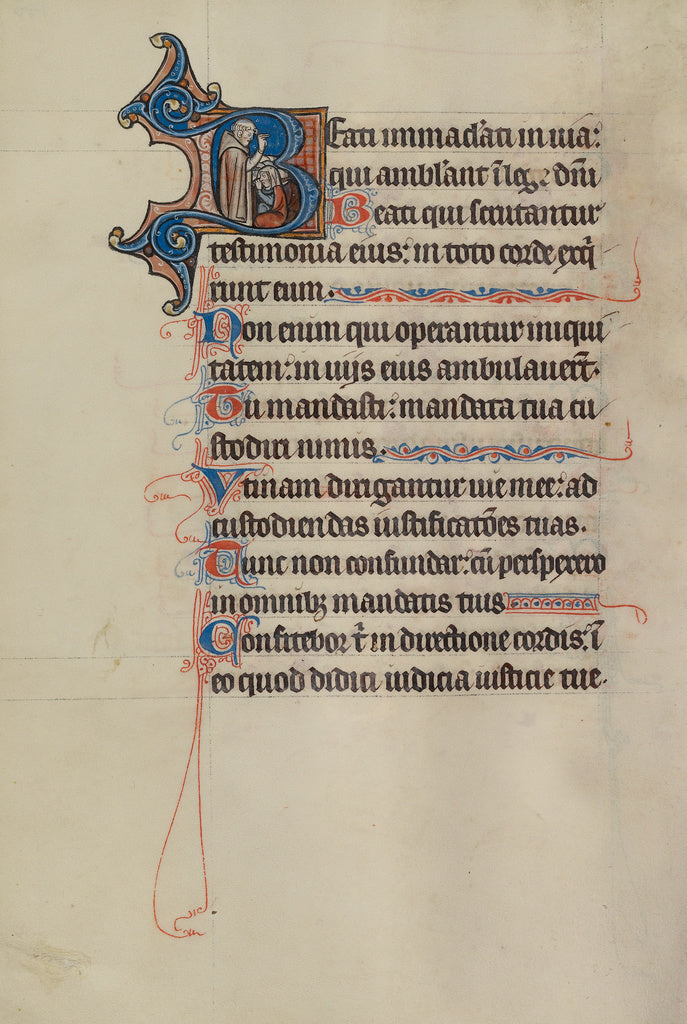 Beati immacl'ati in uia:
qui ambl'ant ī lege dn̄i
Beati qui scrutantur
testimonia eius: in toto corde exq̄
runt eum.
Non enim qui operantur iniqui
tatem: in uijs eius ambulauer̄t.
Tu mandasti: mandata tua cu
stodiri nimis.
Vtinam dirigantur uie mee: ad
custodiendas iustificatōes tuas.
Tunc non confundar: cū perspexero
in omnibꝫ mandatis tuis
Confitebor t̄ in directione cordis: ī
eo quod didici iudicia iusticie tue.